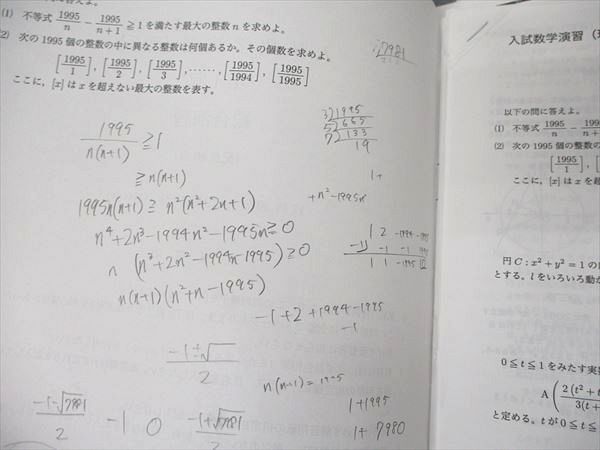 (1) 不等式 1995/n − 1995/(n+1) ≧ 1 を満たす最大の整数 n を求めよ。
(2) 次の 1995 個の整数の中に異なる整数は何個あるか。その個数を求めよ。
[1995/1], [1995/2], [1995/3], ……, [1995/1994], [1995/1995]
ここに，[x] は x を超えない最大の整数を表す。
1995/n(n+1) ≧ 1
≧ n(n+1)
1995n(n+1) ≧ n²(n²+2n+1)
n⁴+2n³−1994n²−1995n ≧ 0
n (n³+2n²−1994n−1995) ≧ 0
n(n+1)(n²+n−1995)
−1±√
2
−1−√7981
2
−1
0
−1+√7981
2
7981
3)1995
5)665
7)133
19
1+
+n²−1995n
1 2 −1994 −1995
−1) −1 −1 1995
1 1 −1995 0
−1+2+1994−1995
−1
n(n+1)=1995
1+1995
1+ 7980
入試数学演習
以下の問に答えよ。
(1) 不等式 1995/n − 1995
(2) 次の 1995 個の整数の
[1995/1],
ここに，[x] は x を超
円 C : x² + y² = 1 の
とする。l をいろいろ動か
0 ≦ t ≦ 1 をみたす実
A ( 2(t² + t
3(t +
と定める。t が 0 ≦ t ≦